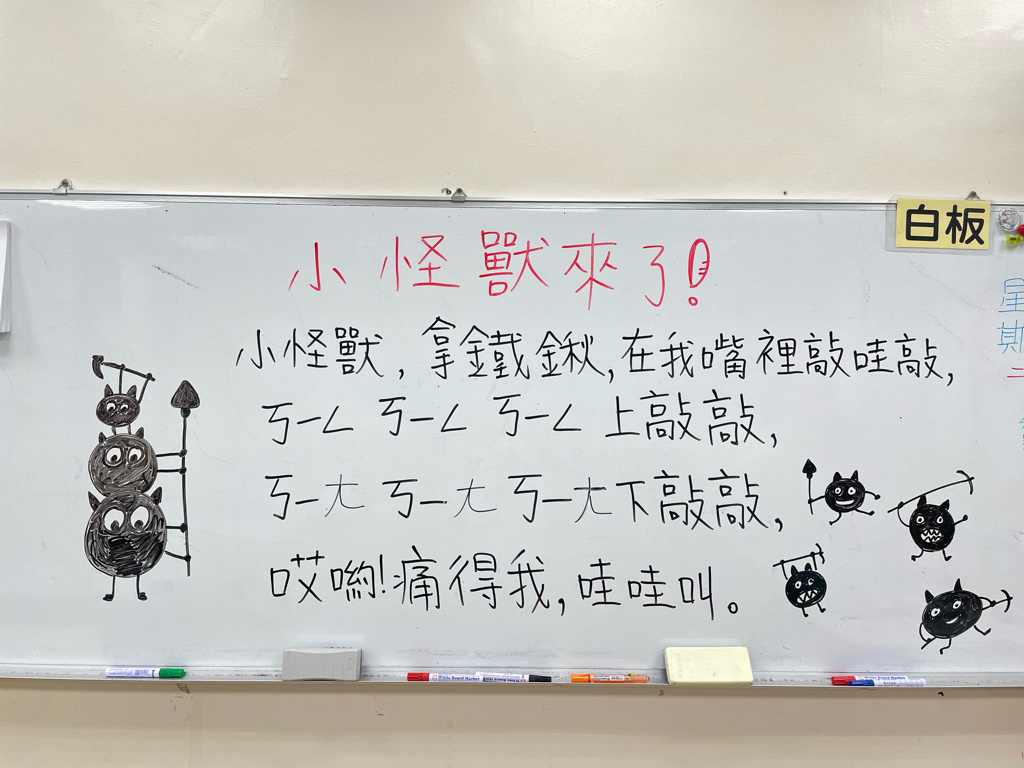 白板
小怪獸來了!
小怪獸,拿鐵鍬,在我嘴裡敲哇敲,
ㄎㄧㄥ ㄎㄧㄥ ㄎㄧㄥ 上敲敲,
ㄎㄧㄤ ㄎㄧㄤ ㄎㄧㄤ下敲敲,
哎喲!痛得我,哇哇叫。
星
斯
二
White Board Marker